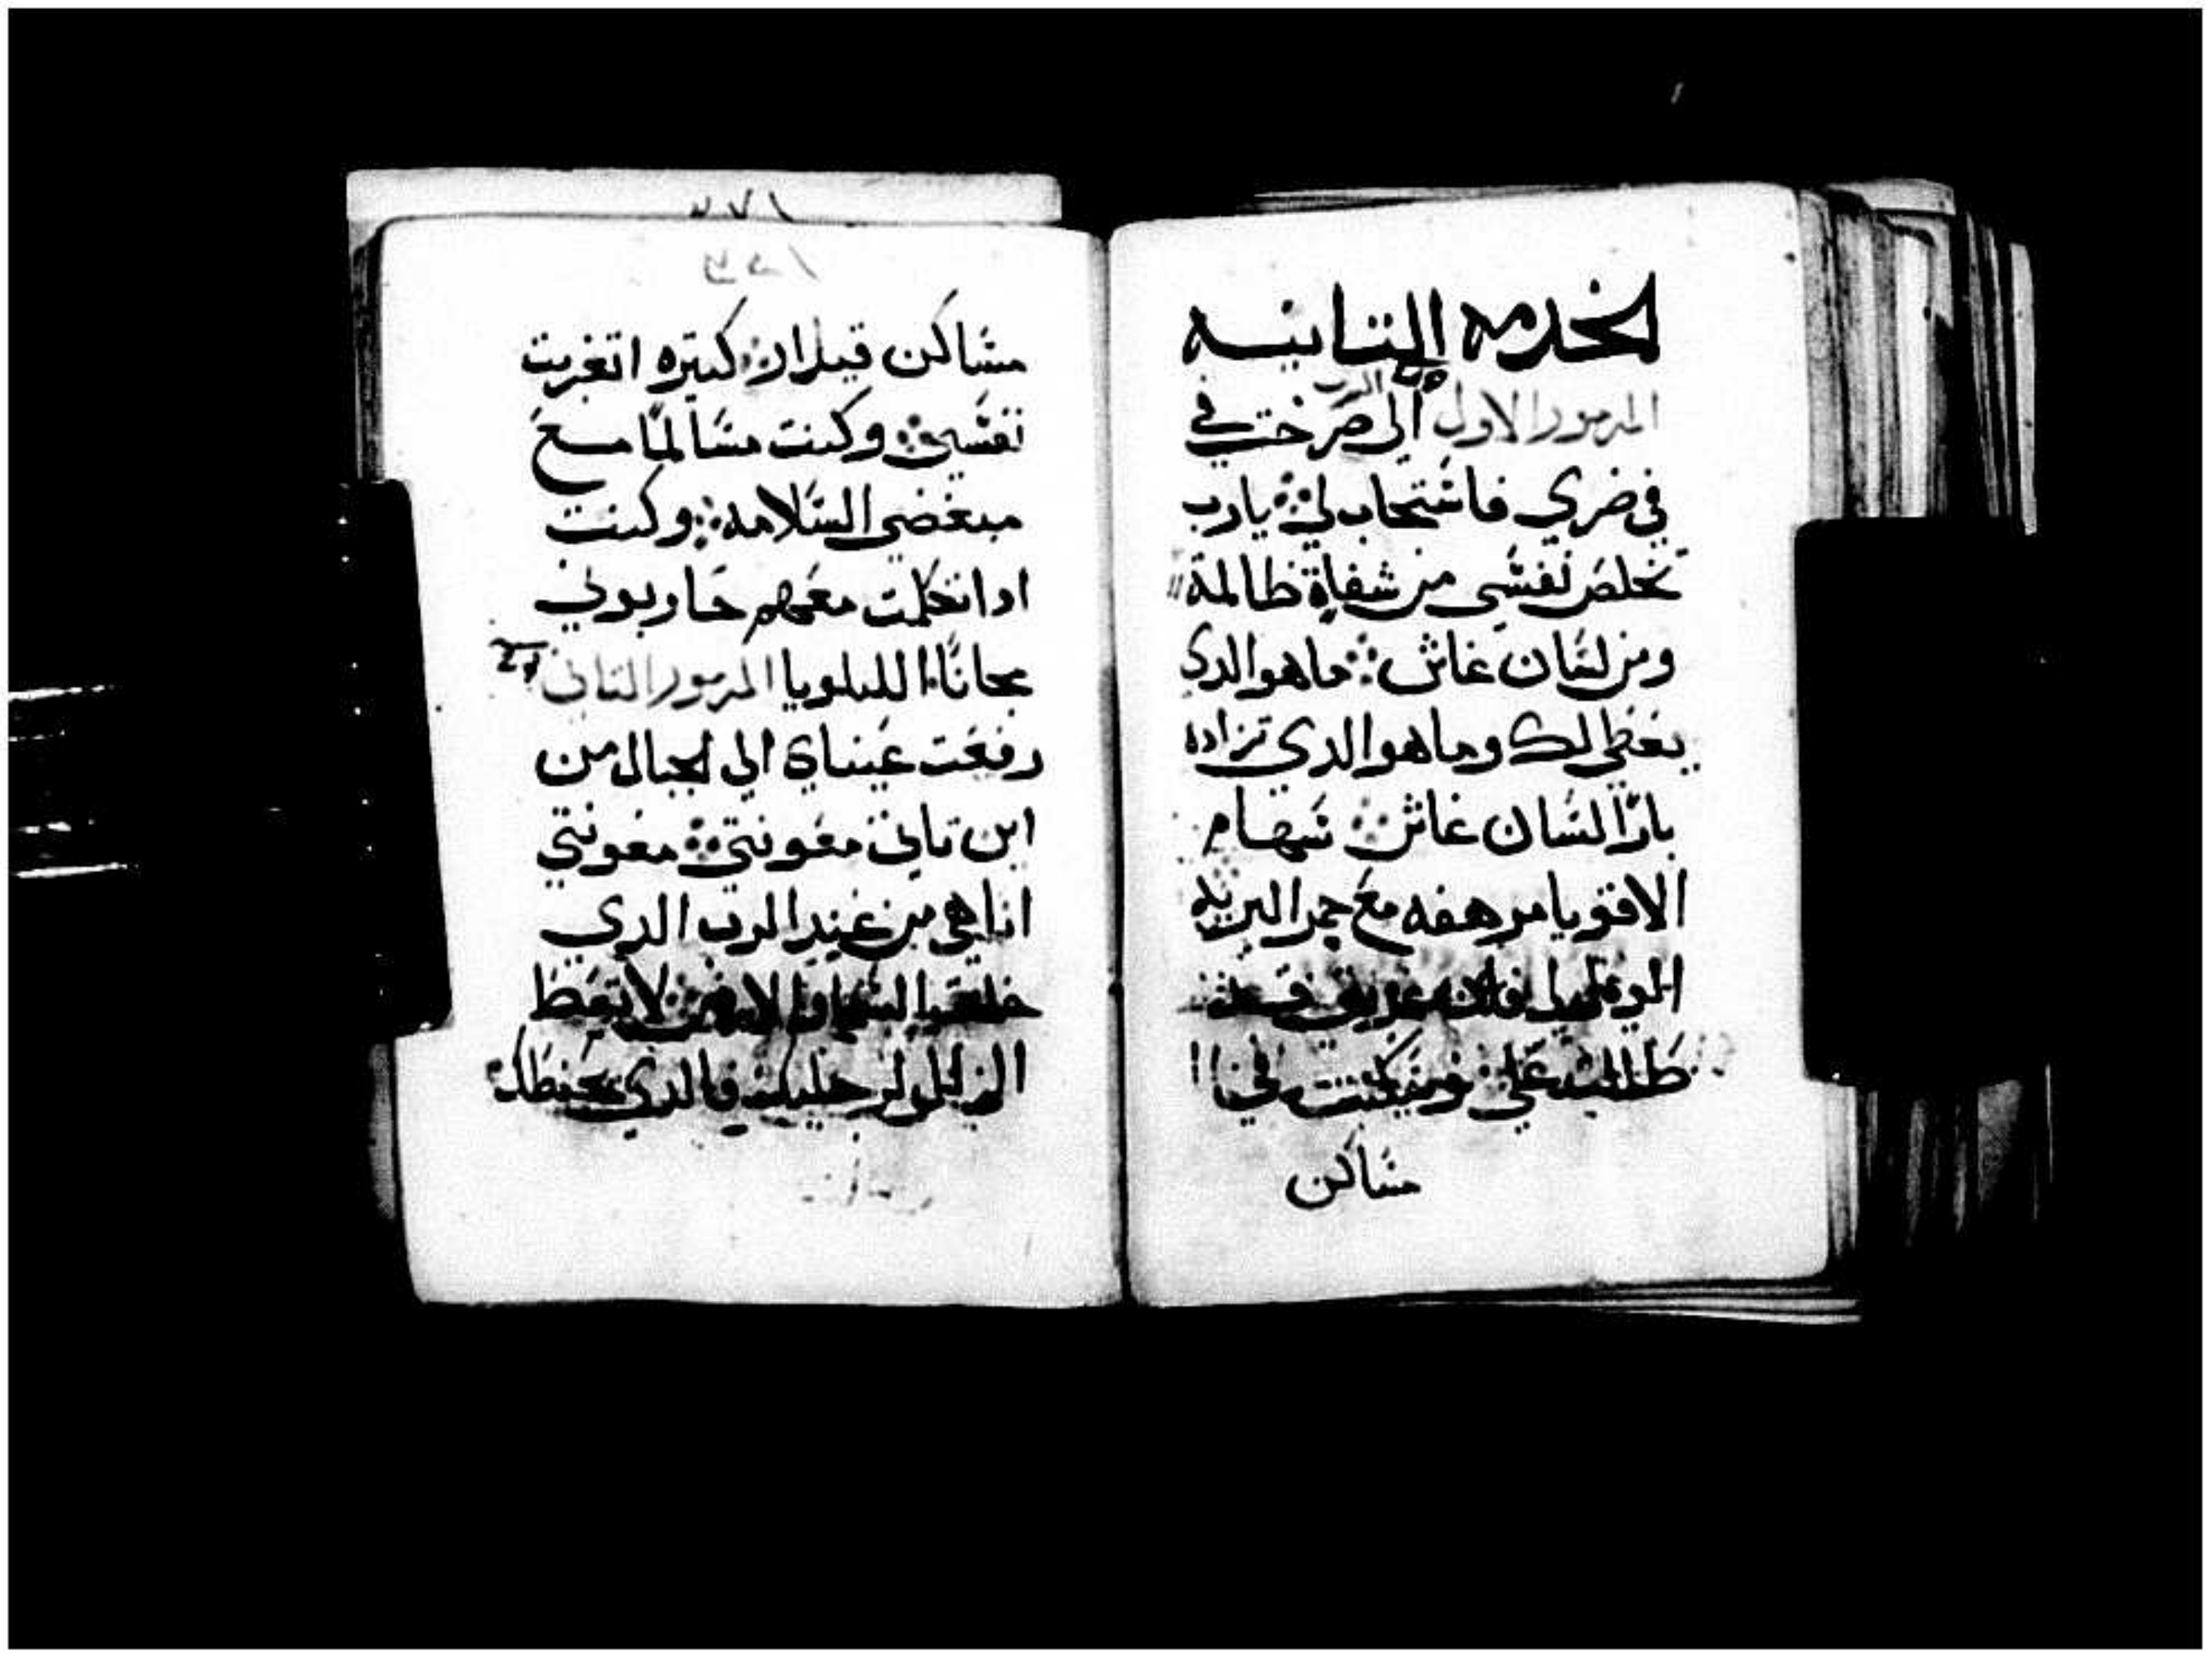 الخدمه التانيه
المزمور الاول الي الرب صرختت في
في ضري فاستجاب لي ؞ يارب
تخلص نفسي من شفاة ظالمة
ومن لسان غاش ؞ ما هو الدي
يعطي لك وما هو الدي تزاده
بازا لسان غاش ؞ سهام
الاقويا مرهفه مع جمر البريه
الويل لي فان غربتي قد
طالت علي وسكنت في
مساكن
مساكن قيدار ؞ كتيره اتغربت
نفسي ؞ وكنت مسالمًا مع
مبغضي السلامه ؞ وكنت
ادا تكلمت معهم حاربوني
مجانًا الليلويا المزمور التاني
رفعت عيناي الي الجبال من
اين تاتي معونتي ؞ معونتي
انا هي من عند الرب الدي
خلق السما والارض ؞ لا يعط
الزلل لرجليك فالدي يحفظك